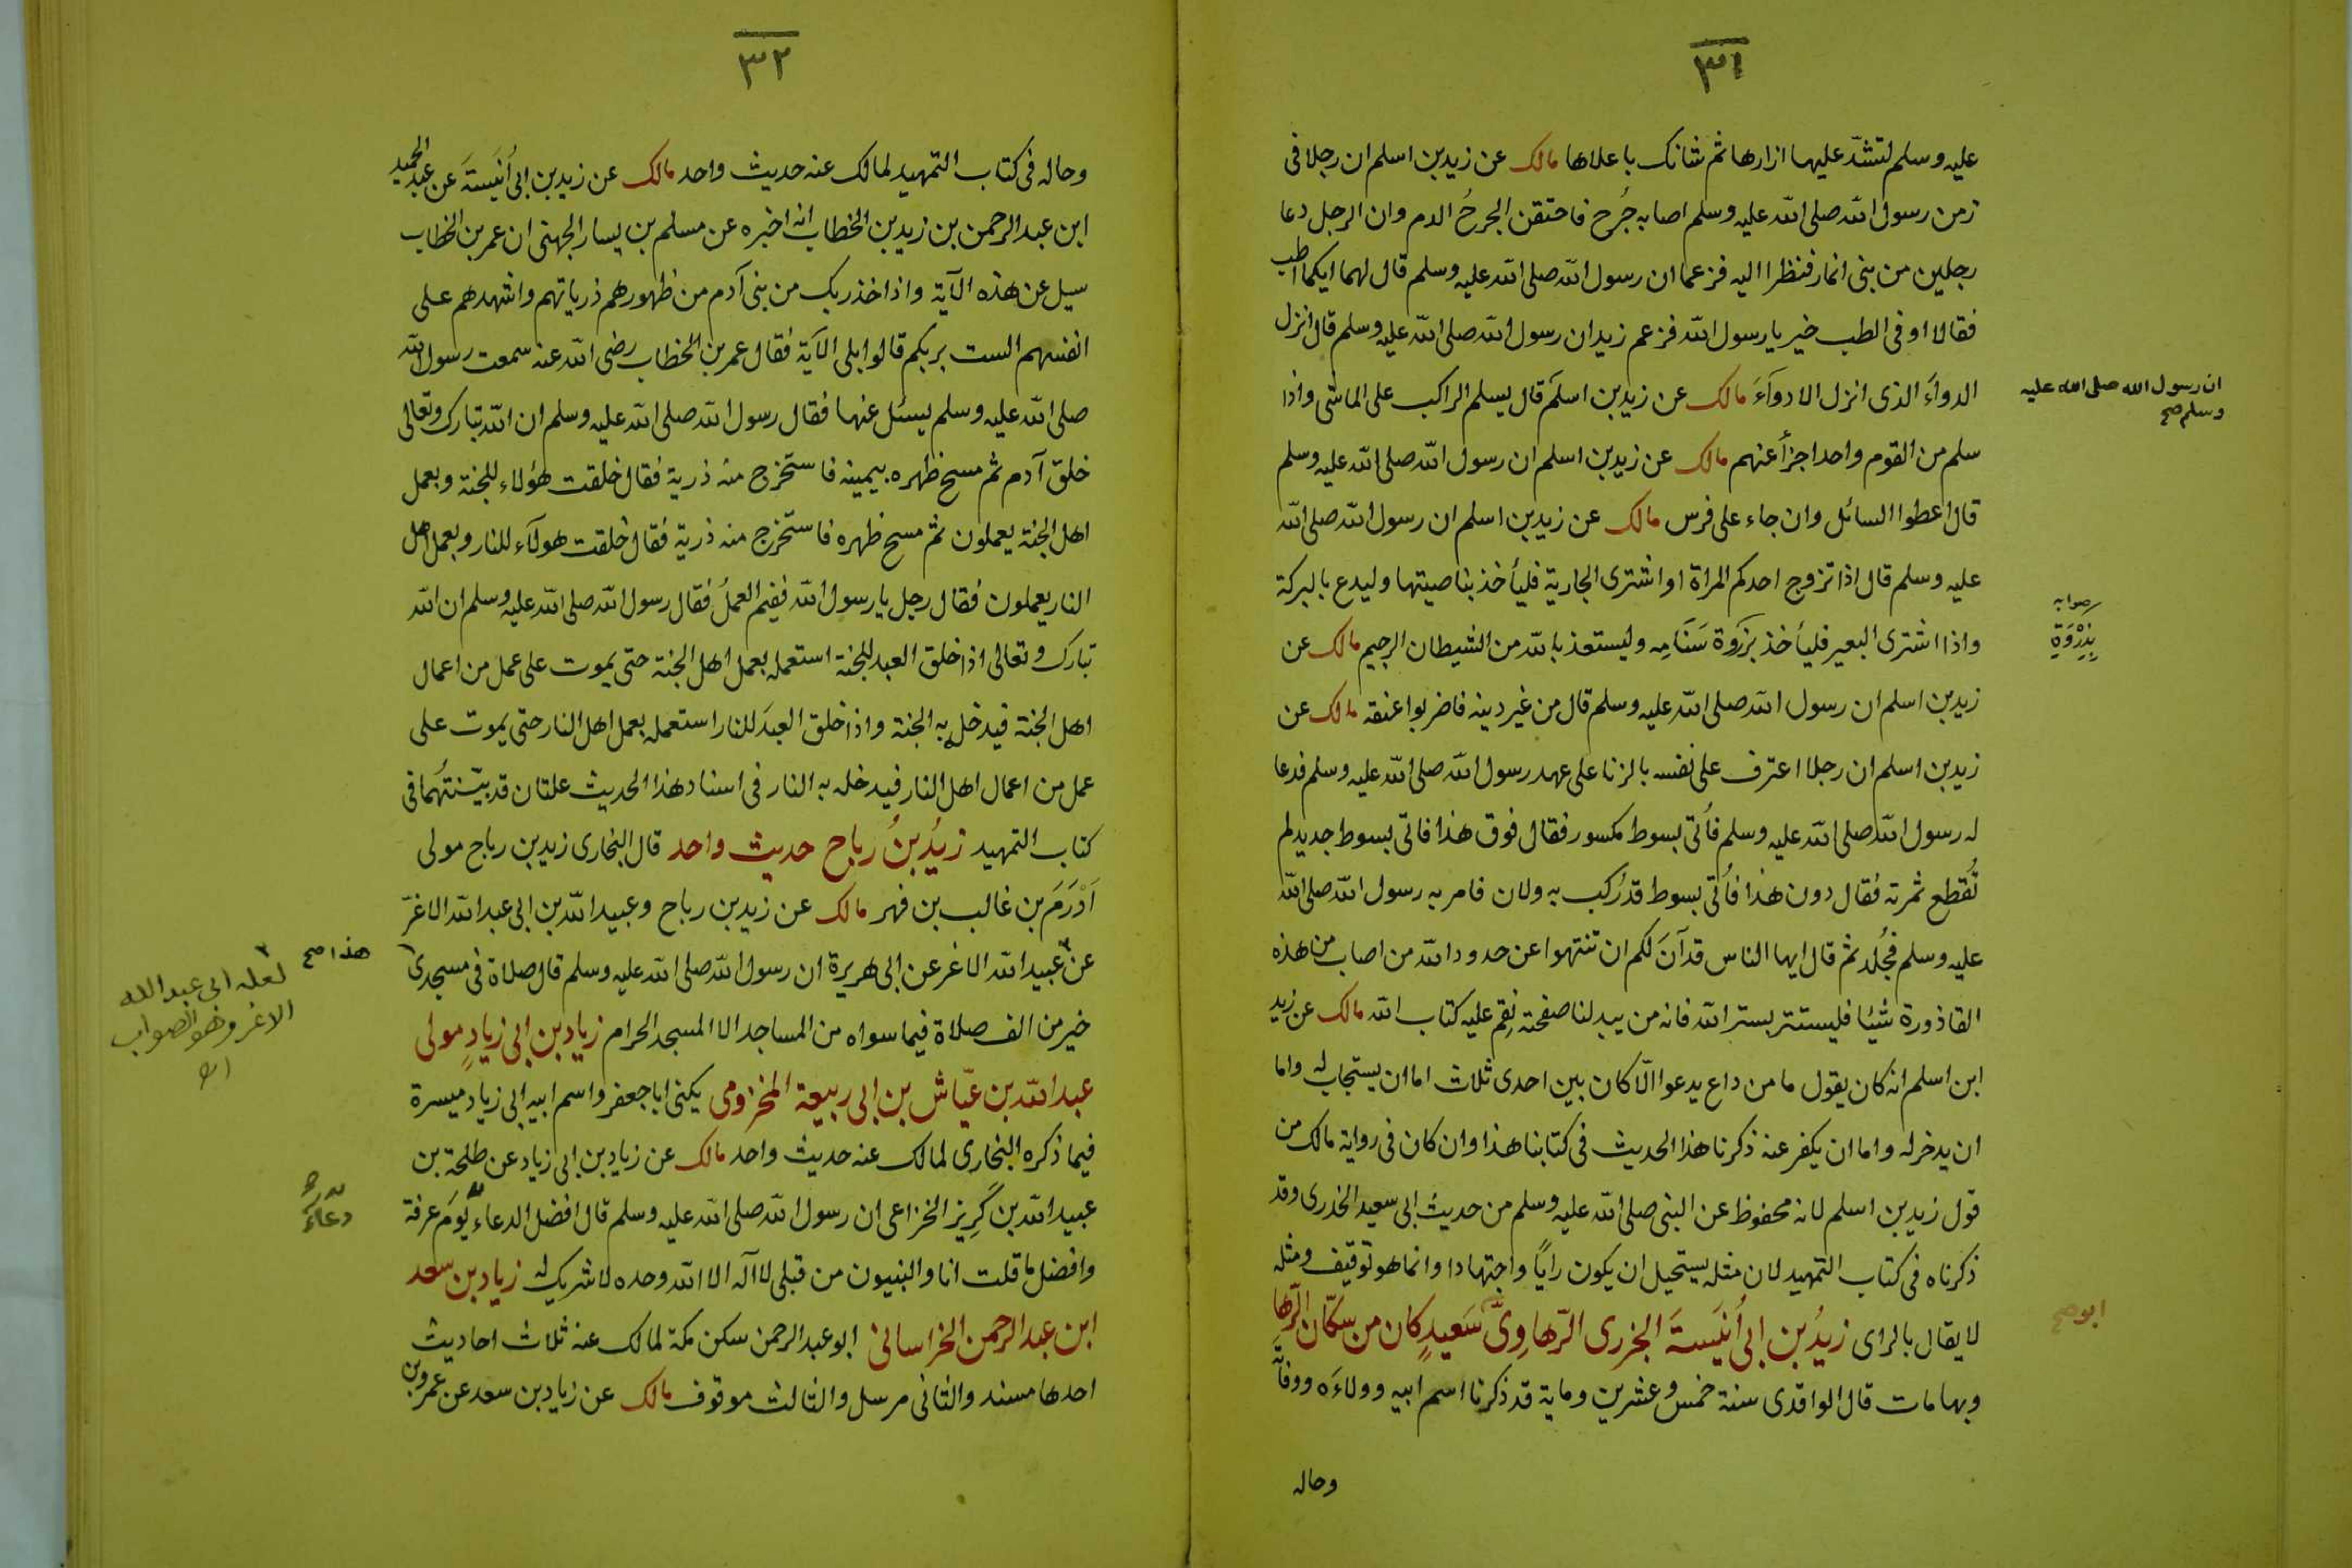 ٣١
عليه وسلم لتشدّ عليها ازارها ثم شانك باعلاها مالك عن زيد بن اسلم ان رجلا فى
زمن رسول الله صلى الله عليه وسلم اصابه جُرح فاحتقن الجرحُ الدم وان الرجل دعا
رجلين من بنى انمار فنظرا اليه فزعما ان رسول الله صلى الله عليه وسلم قال لهما ايكما اطب
فقالا او فى الطب خير يا رسول الله فزعم زيد ان رسول الله صلى الله عليه وسلم قال انزل
الدواءَ الذى انزل الادوآءَ مالك عن زيد بن اسلم قال يسلم الراكب على الماشى واذا
ان رسول الله صلى الله عليه
وسلم صح
سلم من القوم واحد اجزأ عنهم مالك عن زيد بن اسلم ان رسول الله صلى الله عليه وسلم
قال اعطوا السائل وان جاء على فرس مالك عن زيد بن اسلم ان رسول الله صلى الله
عليه وسلم قال اذا تزوج احدكم المراة او اشترى الجارية فليأخذ بناصيتها وليدع بالبركة
واذا اشترى البعير فليأخذ بزروة سَنَامِه وليستعذ بالله من الشيطان الرجيم مالك عن
صوابه
بِذِرْوَةِ
زيد بن اسلم ان رسول الله صلى الله عليه وسلم قال من غير دينه فاضربوا عنقه مالك عن
زيد بن اسلم ان رجلا اعترف على نفسه بالزنا على عهد رسول الله صلى الله عليه وسلم فدعا
له رسول الله صلى الله عليه وسلم فأتى بسوط مكسور فقال فوق هذا فاتى بسوط جديد لم
تُقطع ثمرته فقال دون هذا فأتى بسوط قد رُكب به ولان فامر به رسول الله صلى الله
عليه وسلم فجُلد ثم قال ايها الناس قد آنَ لكم ان تنتهوا عن حدود الله من اصاب من هذه
القاذورة شيئا فليستتر بستر الله فانه من يبد لنا صفحته نقم عليه كتاب الله مالك عن زيد
ابن اسلم انه كان يقول ما من داع يدعوا الّا كان بين احدى ثلاث اما ان يستجاب له واما
ان يدخر له واما ان يكفر عنه ذكرنا هذا الحديث فى كتابنا هذا وان كان فى رواية مالك من
قول زيد بن اسلم لانه محفوظ عن النبى صلى الله عليه وسلم من حديث ابى سعيد الخدرى وقد
ذكرناه فى كتاب التمهيد لان مثله يستحيل ان يكون رايًا واجتهادا وانما هو توقيف ومثله
لا يقال بالراى زيدُ بن ابى أُنَيسةَ الجزرى الرّهاوِىّ سَعيدٍ كان من سكّان الرّها
ابو صح
وبها مات قال الواقدى سنة خمس وعشرين وماية قد ذكرنا اسم ابيه وولاءَه ووفاته
وحاله
٣٢
وحاله فى كتاب التمهيد لمالك عنه حديث واحد مالك عن زيد بن ابى أُنَيسَةَ عن عبد الحميد
ابن عبد الرحمن بن زيد بن الخطاب انه اخبره عن مسلم بن يسار الجهنى ان عمر بن الخطاب
سيل عن هذه الآية واذ اخذ ربك من بنى آدم من ظهورهم ذرياتهم واشهدهم على
انفسهم الست بربكم قالوا بلى الآية فقال عمر بن الخطاب رضى الله عنه سمعت رسول الله
صلى الله عليه وسلم يسئل عنها فقال رسول الله صلى الله عليه وسلم ان الله تبارك وتعالى
خلق آدم ثم مسح ظهره بيمينه فاستخرج منه ذرية فقال خلقت هؤلاء للجنة وبعمل
اهل الجنة يعملون ثم مسح ظهره فاستخرج منه ذرية فقال خلقت هولآء للنار وبعمل اهل
النار يعملون فقال رجل يا رسول الله ففيم العملُ فقال رسول الله صلى الله عليه وسلم ان الله
تبارك وتعالى اذا خلق العبد للجنة استعمله بعمل اهل الجنة حتى يموت على عمل من اعمال
اهل الجنة فيدخله به الجنة واذا خلق العبدَ للنار استعمله بعمل اهل النار حتى يموت على
عمل من اعمال اهل النار فيدخله به النار فى اسناد هذا الحديث علتان قد بيّنتُهما فى
كتاب التمهيد زيدُ بنُ رباح حديث واحد قال البخارى زيد بن رباح مولى
اَدْرَمَ بن غالب بن فهر مالك عن زيد بن رباح وعبيد الله بن ابى عبد الله الاغرّ
عن عبيد الله الاغر عن ابى هريرة ان رسول الله صلى الله عليه وسلم قال صلاة فى مسجدى
هذا صح
٢
لعله ابى عبد الله
الاغر وهو الصواب
اه
خير من الف صلاة فيما سواه من المساجد الا المسجد الحرام زياد بن ابى زيادٍ مولى
عبد الله بن عيّاش بن ابى ربيعة المخزومى يكنى ابا جعفر واسم ابيه ابى زياد ميسرة
فيما ذكره البخارى لمالك عنه حديث واحد مالك عن زياد بن ابى زياد عن طلحة بن
عبيد الله بن كَرِيز الخزاعى ان رسول الله صلى الله عليه وسلم قال افضل الدعاء يَومَ عرفة
دعاءُ
وافضل ما قلت انا والنبيون من قبلى لا آله الا الله وحده لا شريك له زياد بن سعد
ابن عبد الرحمن الخراسانى ابو عبد الرحمن سكن مكة لمالك عنه ثلاث احاديث
احدها مسند والثانى مرسل والثالث موقوف مالك عن زياد بن سعد عن عمرو بن